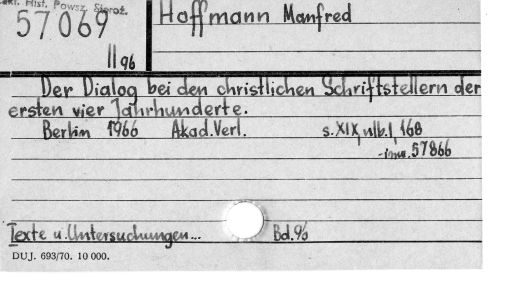 Zakł. Hist. Powsz. Staroż.
57069
II 96
Hoffmann Manfred
Der Dialog bei den christlichen Schriftstellern der
ersten vier Jahrhunderte.
Berlin 1966 Akad. Verl. s. XIX, nlb. 1, 168
57866
Texte u. Untersuchungen... Bd. 96
DUJ. 693/70. 10 000.